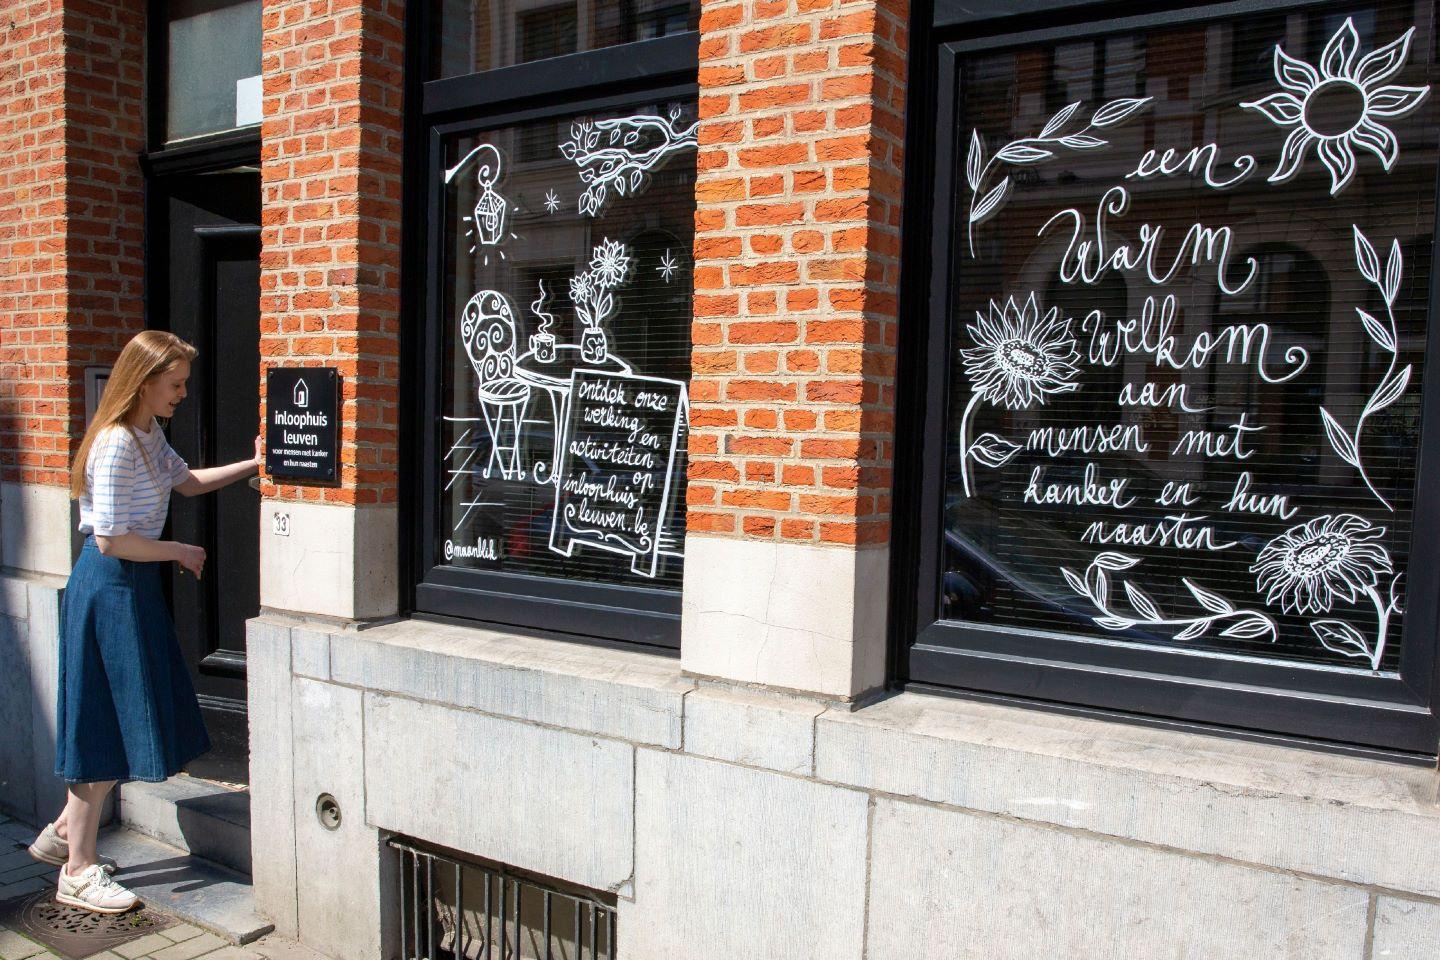 inloophuis
leuven
voor mensen met kanker
en hun naasten
33
ontdek onze
werking en
activiteiten
op
inloophuis
leuven.be
@maanblik
een
Warm
Welkom
aan
mensen met
kanker en hun
naasten